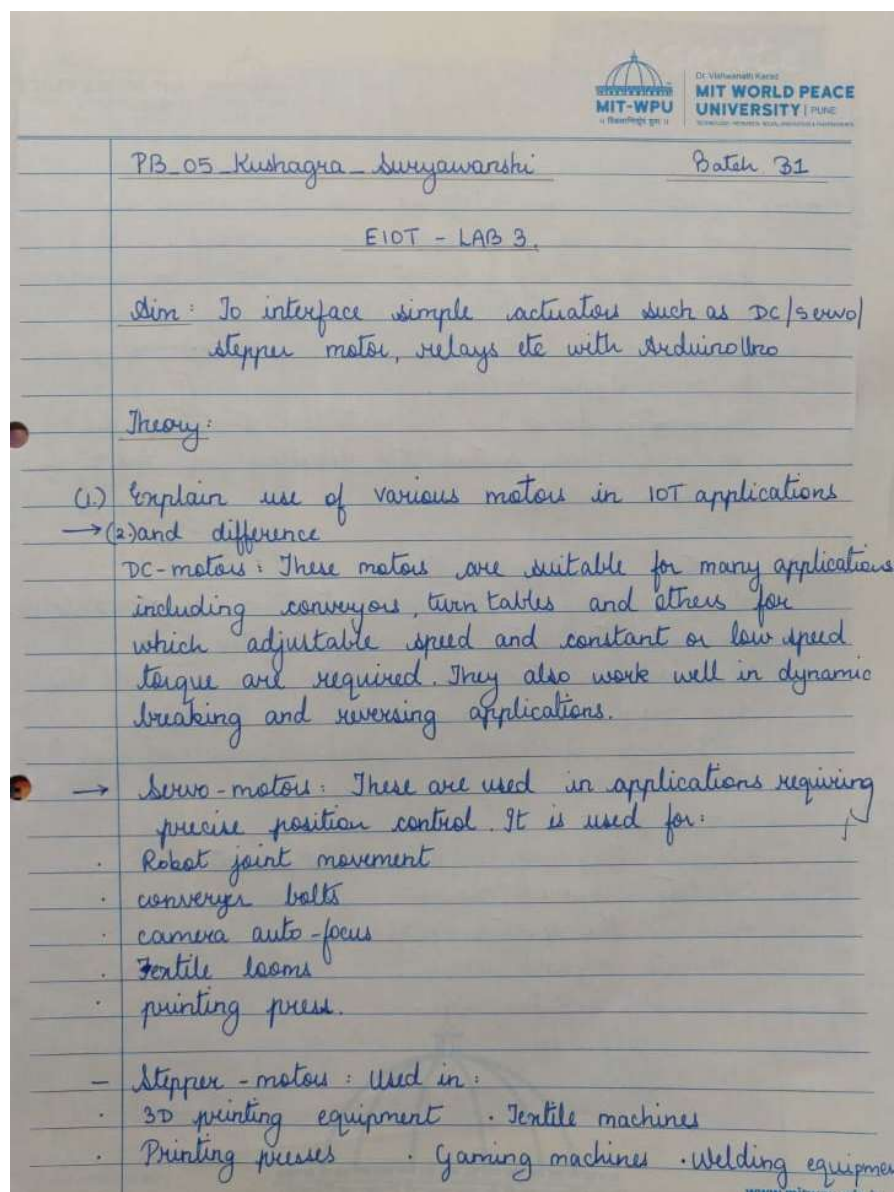 Dr. Vishwanath Karad
MIT WORLD PEACE
UNIVERSITY | PUNE
MIT-WPU
PB_05_Kushagra_Suryawanshi Batch B1
EIOT - LAB 3.
Aim: To interface simple actuators such as DC/servo/
stepper motor, relays etc with Arduino Uno
Theory:
(1.) Explain use of various motors in IOT applications
→(2.) and difference
DC-motors: These motors are suitable for many applications
including conveyors, turn tables and others for
which adjustable speed and constant or low speed
torque are required. They also work well in dynamic
breaking and reversing applications.
→ Servo-motors: These are used in applications requiring
precise position control. It is used for:
· Robot joint movement
· conveyer belts
· camera auto-focus
· Textile looms
· printing press.
- Stepper-motors: Used in:
· 3D printing equipment · Textile machines
· Printing presses · Gaming machines · Welding equipmen